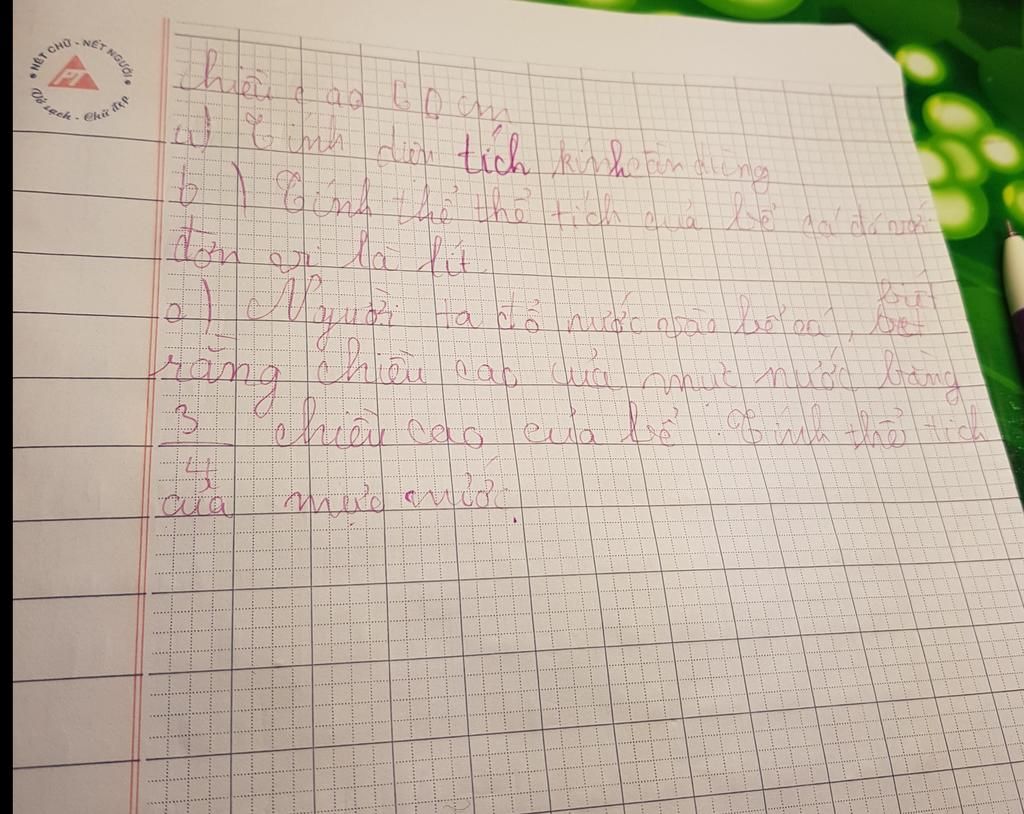 NÉT CHỮ - NẾT NGƯỜI
PT
Vở sạch - Chữ đẹp
chiều cao 60 cm
a) Tính diện tích kính cần dùng
b) Tính thể thể tích của bể cá đó với
đơn vị là lít.
c) Người ta đổ nước vào bể cá, biết
rằng chiều cao của mực nước bằng
3/4 chiều cao của bể. Tính thể tích
của mực nước.